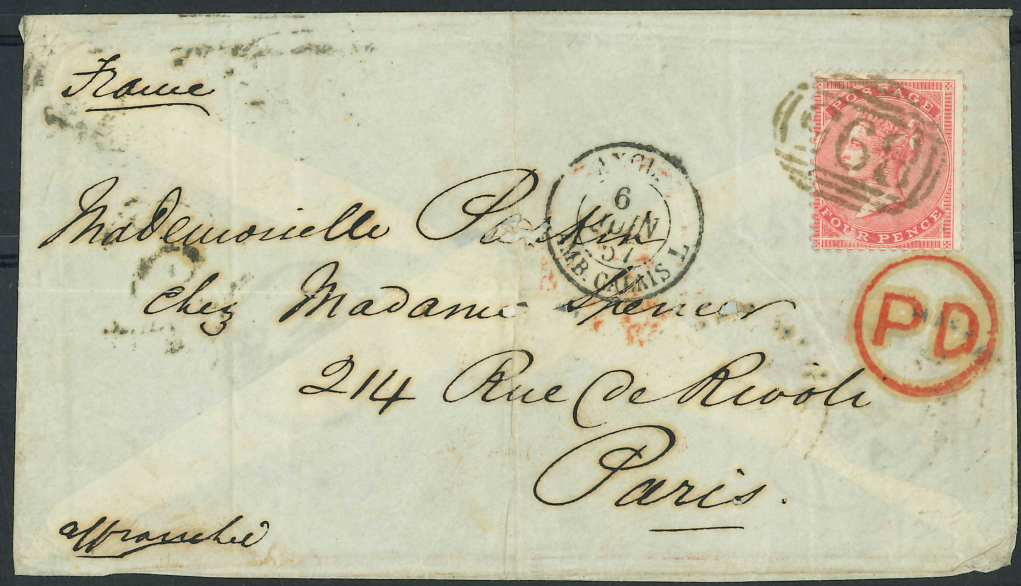 France
POSTAGE
68
FOUR PENCE
ANGL.
6
JUIN
57
AMB. CALAIS
PD
Mademoiselle
chez Madame Spencer
214 Rue de Rivoli
Paris.
affranchie